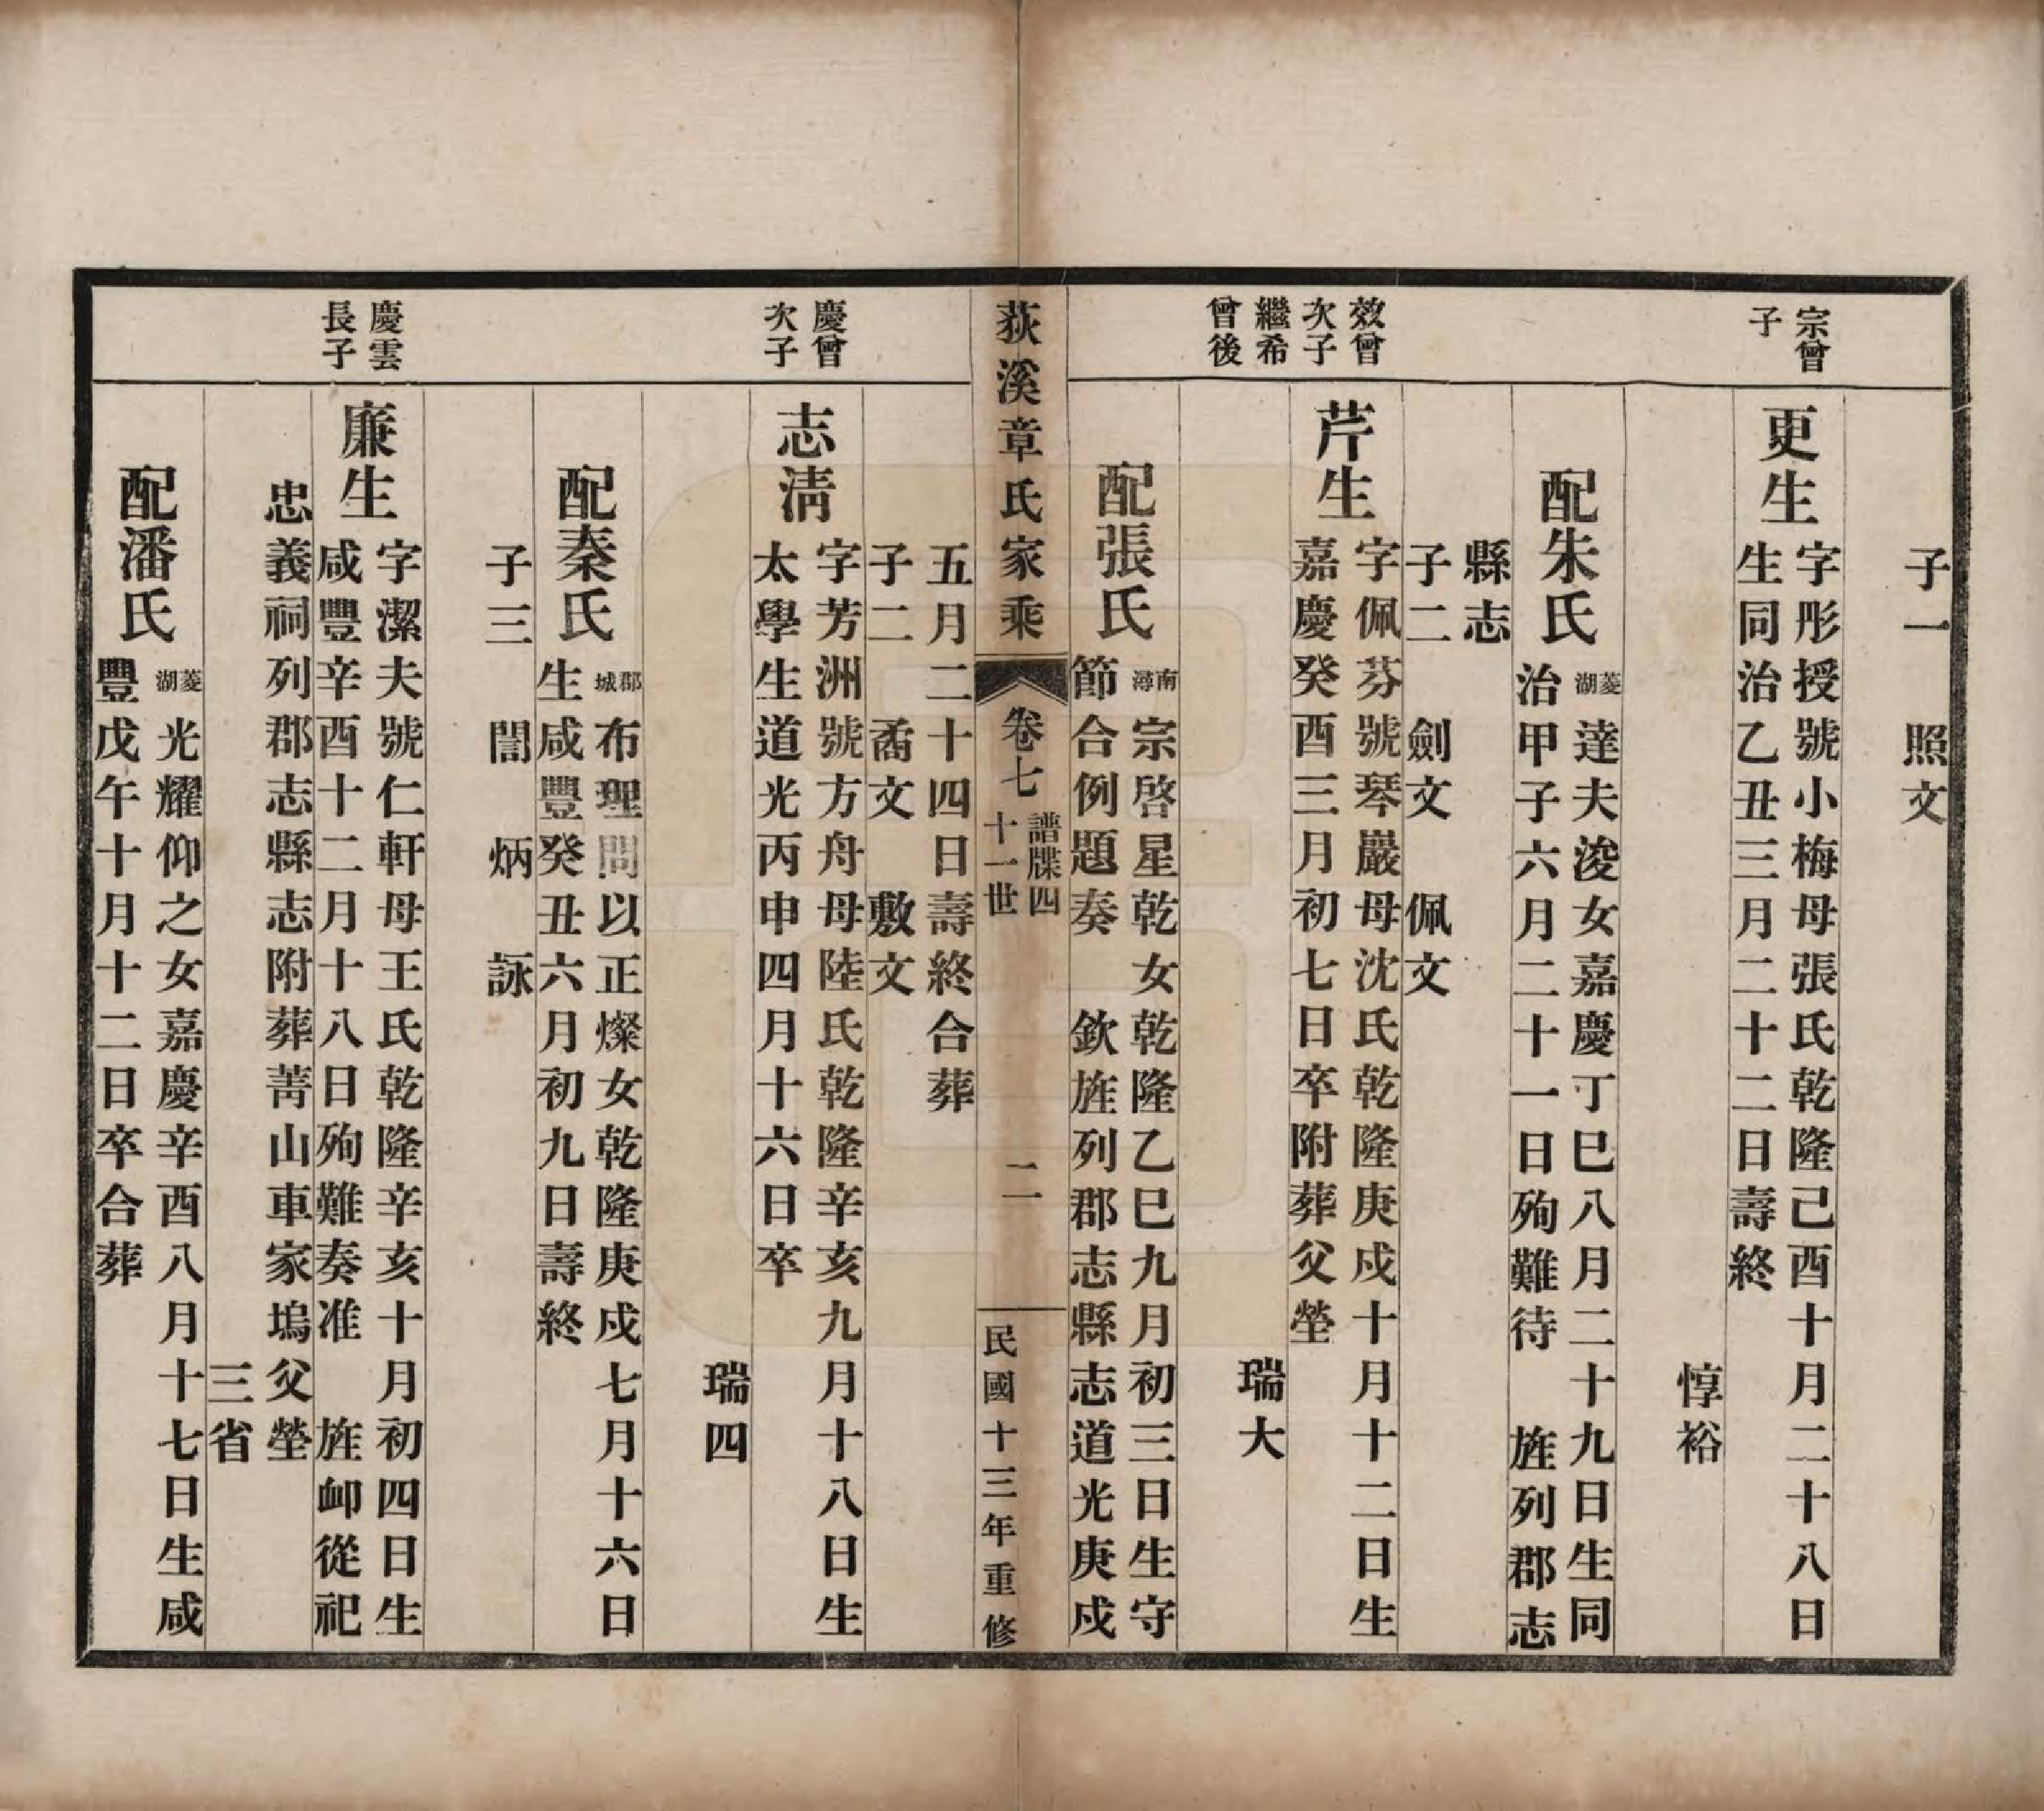 子一　照文
宗曾
子
更生
字彤授號小梅母張氏乾隆己酉十月二十八日
生同治乙丑三月二十二日壽終
惇裕
配朱氏
菱
湖
達夫浚女嘉慶丁巳八月二十九日生同
治甲子六月二十一日殉難待　旌列郡志
縣志
子二　劍文　佩文
效曾
次子
繼希
曾後
芹生
字佩芬號琴巖母沈氏乾隆庚戌十月十二日生
嘉慶癸酉三月初七日卒附葬父塋
瑞大
配張氏
南
潯
宗啓星乾女乾隆乙巳九月初三日生守
節合例題奏　欽旌列郡志縣志道光庚戌
荻溪章氏家乘
卷七
譜牒四
十一世
二一
民國十三年重修
五月二十四日壽終合葬
子二　矞文　敷文
慶曾
次子
志淸
字芳洲號方舟母陸氏乾隆辛亥九月十八日生
太學生道光丙申四月十六日卒
瑞四
配秦氏
郡
城
布理問以正燦女乾隆庚戌七月十六日
生咸豐癸丑六月初九日壽終
子三　誾　炳　詠
慶雲
長子
廉生
字潔夫號仁軒母王氏乾隆辛亥十月初四日生
咸豐辛酉十二月十八日殉難奏准　旌卹從祀
忠義祠列郡志縣志附葬菁山車家塢父塋
三省
配潘氏
菱
湖
光耀仰之女嘉慶辛酉八月十七日生咸
豐戊午十月十二日卒合葬